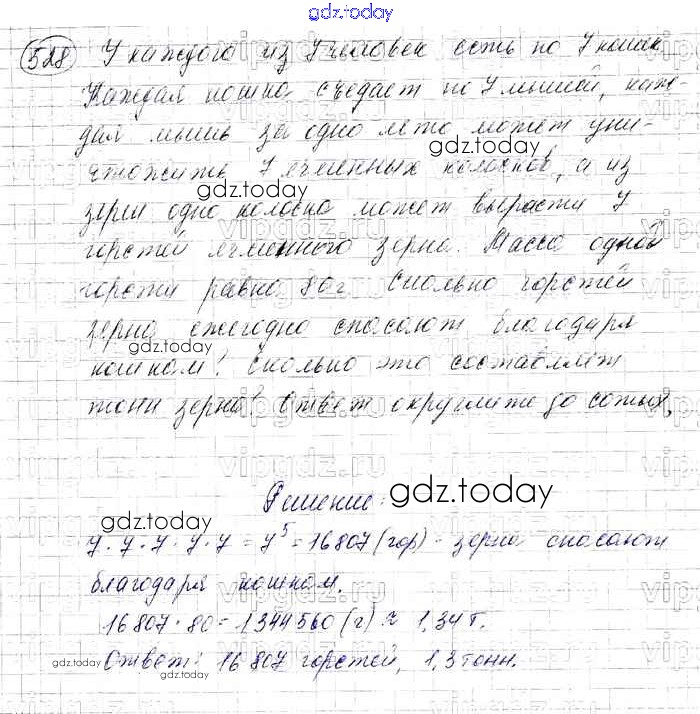 gdz.today
528 У каждого из 7 человек есть по 7 кошек.
Каждая кошка съедает по 7 мышей, каж-
дая мышь за одно лето может уни-
gdz.today
чтожить 7 ячменных колосков, а из
gdz.today
зерен одно колоска может вырасти 7
горстей ячменного зерна. Масса одной
горсти равна 80г. Сколько горстей
зерна ежегодно спасают благодаря
gdz.today
кошкам? Сколько это составляет
тонн зерна? Ответ округлите до сотых.
vipgdz.ru
Решение:
gdz.today
gdz.today
7·7·7·7·7 = 7⁵ = 16807 (гор) - зерна спасают
благодаря кошкам.
16807·80 = 1344560 (г) ≈ 1,34т.
Ответ: 16807 горстей, 1,3 тонн.
gdz.today
gdz.today